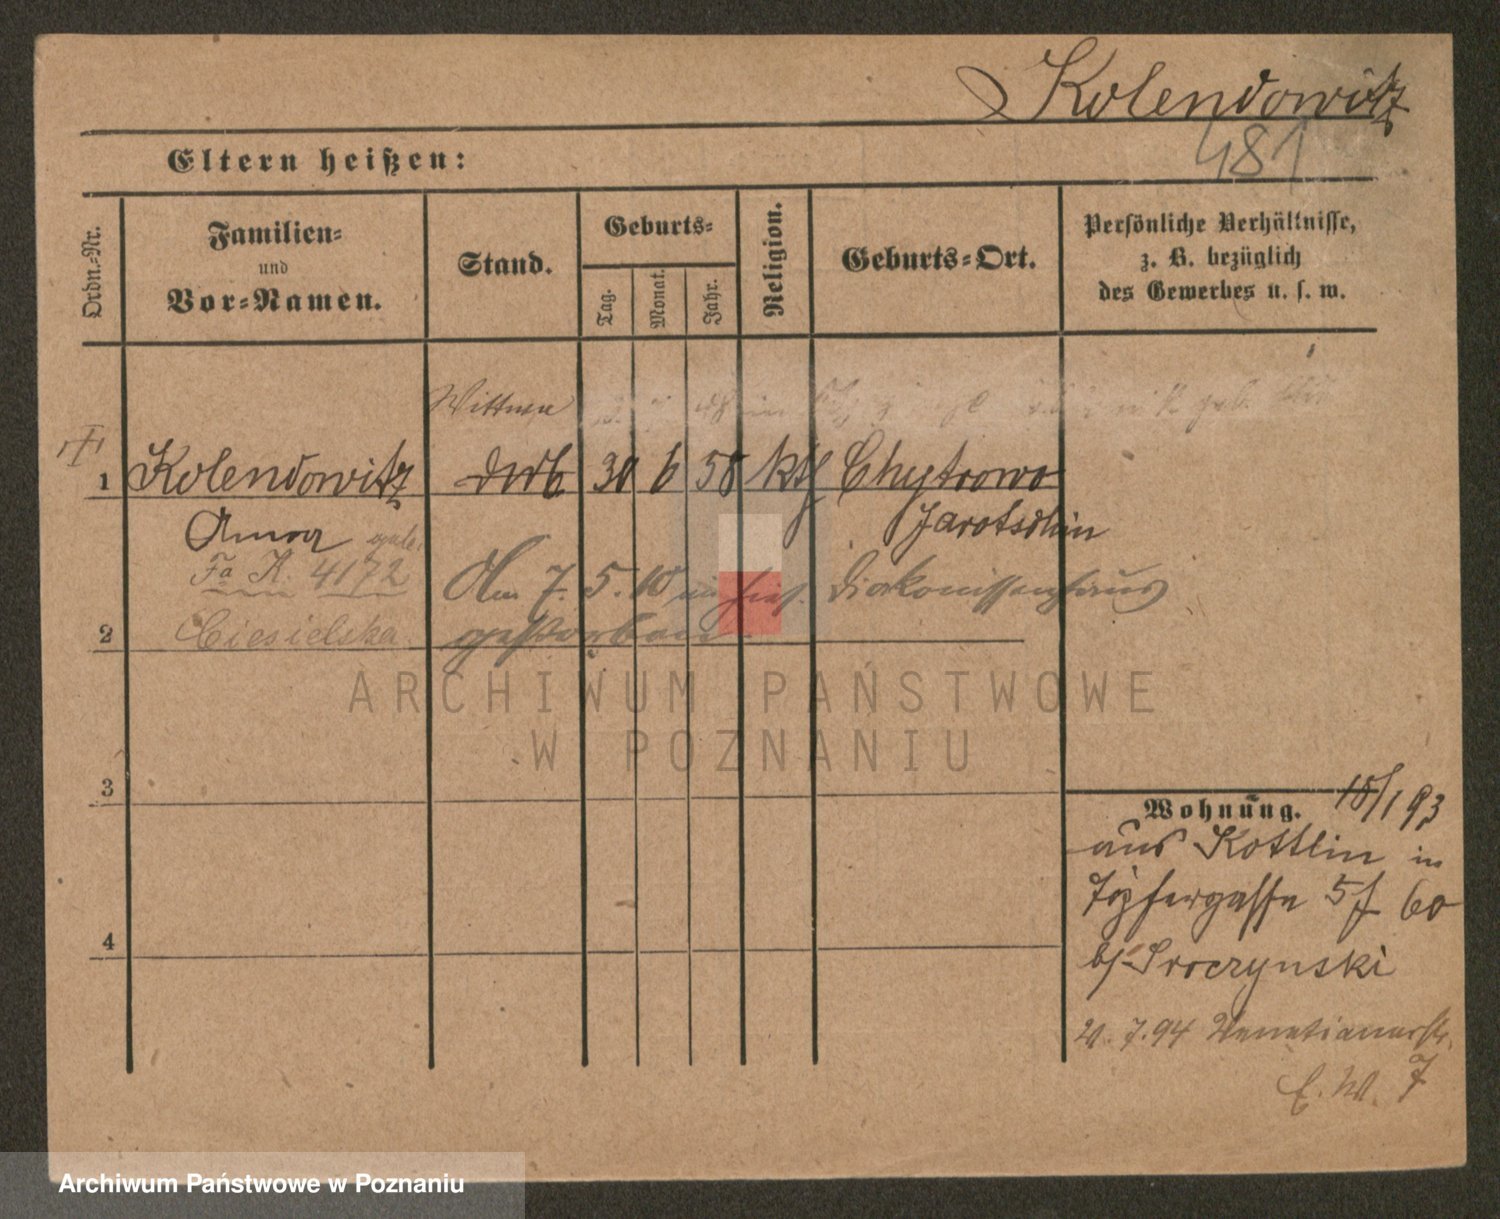 Kolendowitz
481
Eltern heißen:
Ordn.-Nr.
Familien-
und
Vor-Namen.
Stand.
Geburts-
Tag.
Monat.
Jahr.
Religion.
Geburts-Ort.
Persönliche Verhältnisse,
z. B. bezüglich
des Gewerbes u. s. w.
Wittwe
1 Kolendowitz 30 6 58 kth Chytrowo
Anna geb. Jarotschin
Fa K. 4172
Am 7. 5. 10 im hies. Diakonissenhaus
2 Ciesielska gestorben
ARCHIWUM PAŃSTWOWE
W POZNANIU
3
Wohnung. 18/1 93
aus Kottlin in
Töpfergasse 5 60
b/ Sroczynski
7.94 Venetianerstr.
7
4
Archiwum Państwowe w Poznaniu